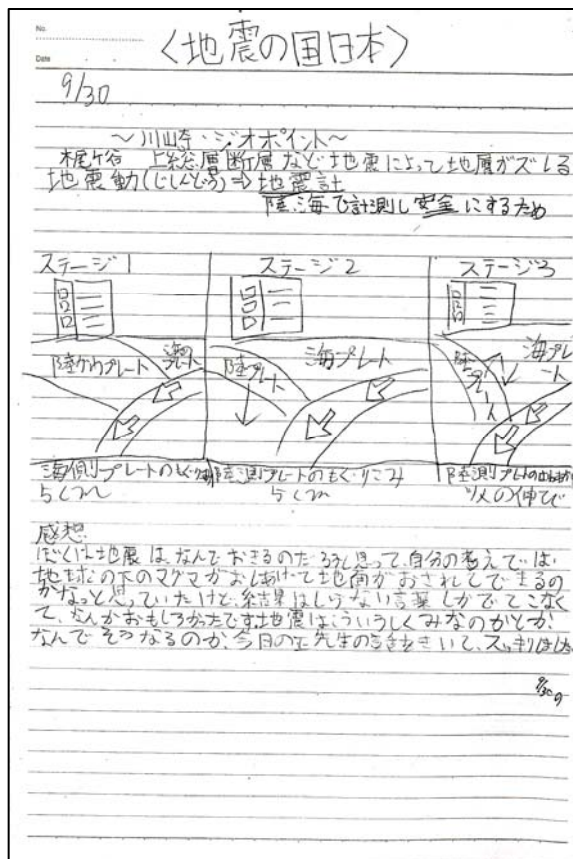 No.
Date
〈地震の国日本〉
9/30
〜川崎・ジオポイント〜
梶ケ谷 上総層断層など地震によって地層がズレる
地震動(じしんどう)⇒地震計
陸海で計測し安全にするため
ステージ1
ステージ2
ステージ3
陸がわプレート
陸プレート
海プレート
陸プレート
海プレート
海側プレートのもぐりこみ
5cm
陸測プレートのもぐりこみ
5cm
陸測プレートの
ツメの伸び
感想
ぼくは地震は、なんでおきるのだろうと思って、自分の考えでは、
地球の下のマグマがおしあげて地角がおされてできるの
かなっと思っていたけど、結果はしらない言葉しかでてこなく
て、なんかおもしろかったです。地震はこういうしくみなのかとか、
なんでそうなるのか、今日の先生の話をきいて、スッキリしました
9/30の